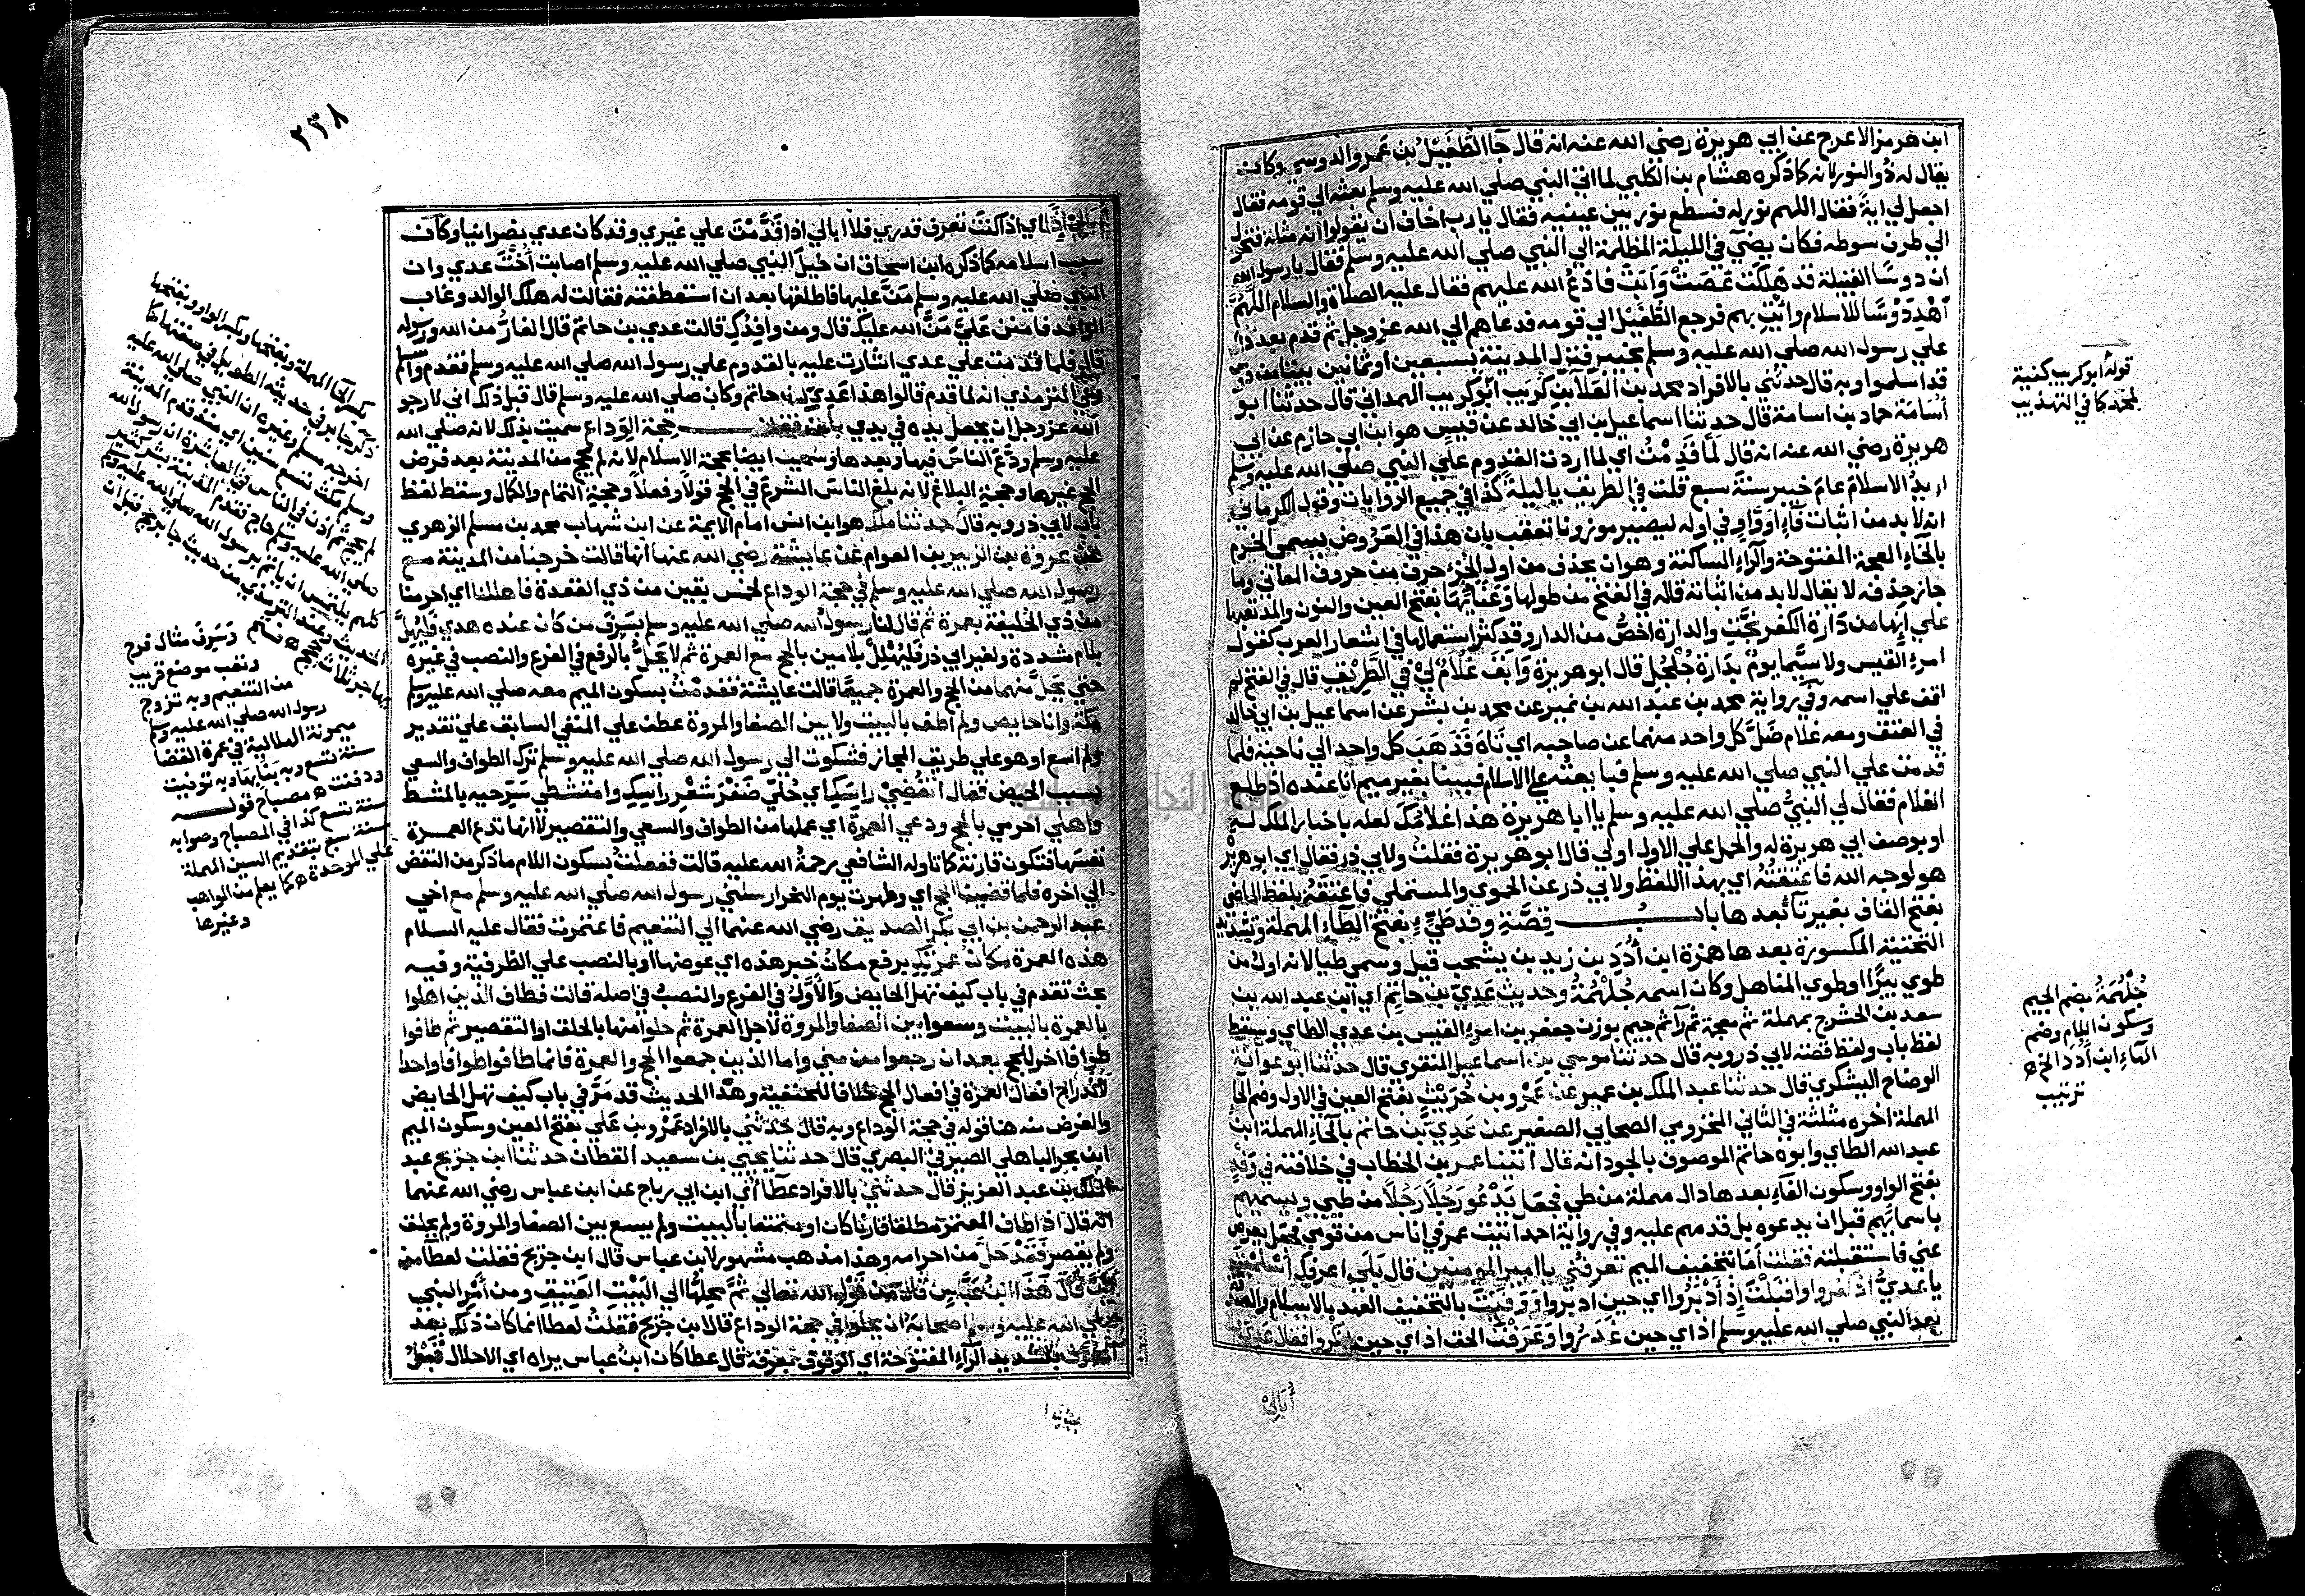 ابن هرمز الاعرج عن ابي هريرة رضي الله عنه انه قال جا الطُّفَيْل بن عَمرو الدوسي وكان
يقال له ذو النور لانه كما ذكره هشام بن الكلبي لما اتى النبي صلي الله عليه وسلم بعثه الي قومه فقال
اجعل لي اية فقال اللهم نور له فسطع نور بين عينيه فقال يا رب اخاف ان يقولوا انه مثلة فتحول
الي طرف سوطه فكان يضي في الليلة المظلمة الي النبي صلي الله عليه وسلم فقال يا رسول الله
ان دوسًا القبيلة قد هَلكَت عَصَتْ وَاَبَتْ فادْعُ الله عليهم فقال عليه الصلاة والسلام اللَّهُمَّ
اَهْدِ دَوْسًا للاسلام وأْتِ بهم فرجع الطُّفَيْل الي قومه فدعاهم الي الله عز وجل ثم قدم بعد ذلك
علي رسول الله صلي الله عليه وسلم بخيبر فنزل المدينة بسبعين او ثمانين بيتا من دوس
قد اسلموا وبه قال حدثني بالافراد محمد بن العَلاَ بن كُرَيب ابو كريب الهمداني قال حدثنا ابو
اُسَامَة حماد بن اسامة قال حدثنا اسماعيل بن ابي خالد عن قيس هو ابن ابي حازم عن ابي
هريرة رضي الله عنه انه قال لَمَّا قَدِمْتُ اي لما اردت القدوم علي النبي صلي الله عليه وسلم
اريد الاسلام عام خيبر سنة سبع قلت في الطريق يا ليلة كذا في جميع الروايات وقول الكرماني
انه لا بد من اثبات فَاءٍ اَو وَاوٍ في اوله ليصير موزونا تعقب بان هذا في العَرُوض يسمى الخرم
بالخَاءِ المعجمة المفتوحة والراءِ الساكنة وهو ان يحذف من اول الجُزءِ حرف من حروف المعاني وما
جاز حذفه لا يقال لا بد من اثباته قاله في الفتح من طولها وَعَنَائِهَا بفتح العين والنون والمد تعبها
علي اِنها من دَارَة الكفر نَجَّتِ والدارة اخصُّ من الدار وقد كثر استعمالها في اشعار العرب كقول
امرئ القيس ولا سيَّما يومٌ بدَارَة جُلْجُلِ قال ابو هريرة وَاَبَقَ غُلامٌ لِيْ فِي الطَّرِيْقِ قال في الفتح لم
اقف علي اسمه وفي رواية محمد بن عبد الله بن نمير عن محمد بن بشر عن اسماعيل بن ابي خالد
في العتق ومعه غلام ضَلَّ كل واحد منهما عن صاحبه اي تاه فَذَهَبَ كل واحد الي ناحية فلما
قدمت علي النبي صلي الله عليه وسلم فبايعتُه علي الاسلام فبينا بغير ميم انا عنده اذ طلع
الغلام فقال لي النبيُّ صلي الله عليه وسلم يا ابا هريرة هذا غلامُكَ لعله باخبار الملك له
او بوصف ابي هريرة له والحمل علي الاول اولي قال ابو هريرة فقلتُ ولابي ذر فقال اي ابو هريرة
هو لوجه الله فاَعْتَقْتُهُ اي بهذا اللفظ ولابي ذر عن الحموي والمستملي فاعتَقَه بلفظ الماضي
بفتح القاف بغير تآ بعدها بابُ قِصَّةِ وفد طَيِّءٍ بفتح الطَّاءِ المهملة وتشديد
التحتية المكسورة بعدها همزة ابن اُدَدِ بن زيد بن يشجب قيل وسمي طيا لانه اول من
طوي بيرًا او طوي المناهل وكان اسمه جُلْهُمَةُ وحديث عَدِيّ بن حاتِمٍ اي ابن عبد الله بن
سعد بن الحشرج بمهملة ثم معجمة ثم رآ ثم جيم بوزن جعفر بن امرئ القيس بن عدي الطاي وسقط
لفظ باب ولفظ قصة لابي ذر وبه قال حدثنا موسي بن اسماعيل المنقري قال حدثنا ابو عوانة
الوضاح اليشكري قال حدثنا عبد الملك بن عمير عن عَمْرو بن حُرَيْثٍ بفتح العين في الاول وضم الحا
المهملة اخره مثلثة في الثاني المخزومي الصحابي الصغير عن عَدِيّ بن حاتم بالحَاءِ المهملة ابن
عبد الله الطاي وابوه حاتم الموصوف بالجود انه قال اتينا عمر بن الخطاب في خلافته في وَفْدٍ
بفتح الواو وسكون الفَاءِ بعدها دال مهملة من طي فجعل يَدْعُو رَجُلًا رَجُلًا من طي ويسميهم
باسمائِهم قبل ان يدعوه بل قدمهم عليه وفي رواية احمد اتيت عمر في اناس من قومي فجعل يعرض
عني فاستقبلته فقلت اَمَا بتخفيف الميم تعرفُني يا امير المومنين قال بَلَي اعرفك اسْلَمْتَ
يا عديُّ اذ كفروا واقبَلْتَ اِذْ اَدْبَرُوا اي حين ادبروا وَوَفَيْتَ بالتخفيف العهد بالاسلام والصدقة
بعد النبي صلي الله عليه وسلم اذ اي حين غَدَرُوا وَعَرَفْتَ الحق اذ اي حين انكروا فقال عَدِيٌّ
اُبَالِيْ
قوله ابو كريب كنية
لمحمد كما في التهذيب
جُلْهُمَةُ بضم الجيم
وسكون اللام وضم
الهاءِ ابن اُدَدِ الخ ه
ترتيب
٢٣٨
اذًا اي اذا كنتَ تعرف قدري فلا ابالي اذا قَدَّمْتَ علي غيري وقد كان عدي نصرانيا وكان
سبب اسلامه كما ذكره ابن اسحاق ان خَيلَ النبي صلي الله عليه وسلم اصابت اُخْتَ عدي وان
النبي صلي الله عليه وسلم مَنَّ عليها فاطلقها بعد ان استعطفته فقالت له هلك الوالد وغاب
الوافد فامنن عَلَيَّ مَنَّ الله عليك قال ومن وافِدُكِ قالت عدي بن حاتم قال الفارُّ من الله ورسوله
قال فلما قدمت علي عدي اشارت عليه بالقدوم علي رسول الله صلي الله عليه وسلم فقدم واسلم
وفي الترمذي انه لما قدم قالوا هذا عَدِيّ بن حاتم وكان صلي الله عليه وسلم قال قبل ذلك اني لارجو
الله عز وجل ان يجعل يده في يدي باب حِجة الوَداع سميت بذلك لانه صلي الله
عليه وسلم ودَّعَ الناسَ فيها وبعدها وسميت ايضا بحجة الاسلام لانه لم يحج من المدينة بعد فرض
الحج غيرها وحجة البلاغ لانه بلغ الناس الشرعَ في الحج قولًا وفعلًا وحجة التمام والكمال وسقط لفظ
باب لابي ذر وبه قال حدثنا مالك هو ابن انس امام الايمة عن ابن شهاب محمد بن مسلم الزهري
عن عروة بن الزبير بن العوام عن عايشة رضي الله عنها انها قالت خرجنا من المدينة مع
رسول الله صلي الله عليه وسلم في حجة الوداع لخمس بقين من ذي القعدة فاهللنا اي احرمنا
من ذي الحُليفة بعمرة ثم قال لنا رسول الله صلي الله عليه وسلم بسَرِفَ من كان عنده هدي فليُهِلَّ
بلام مشددة ولغير ابي ذر فليُهْلِلْ بلامين بالحج مع العمرة ثم لا يَحِلُّ بالرفع في الفرع والنصب في غيره
حتي يحلَّ منهما من الحج والعمرة جميعًا قالت عايشة فقدمْتُ بسكون الميم معه صلي الله عليه وسلم
مكة وانا حايض ولم اطف بالبيت ولا بين الصفا والمروة عطف علي المنفي السابق علي تقدير
ولم اسع او هو علي طريق المجاز فشكوت الي رسول الله صلي الله عليه وسلم ترك الطواف والسعي
بسبب الحيض فقال انقُضِيْ راسَكِ اي حُلّي ضَفْرَ شَعْرِ راسِكِ وامتشطي سَرِّحيه بالمشط
واهلي احرمي بالحج ودعي العمرة اي عملها من الطواف والسعي والتقصير لا انها تدع العمرة
نفسَها فتكون قارنة كما تاوله الشافعي رحمةُ الله عليه قالت ففعلتُ بسكون اللام ما ذكر من النقض
الي اخره فلما قضينا الحج اي وطهرت يوم النحر ارسلني رسول الله صلي الله عليه وسلم مع اخي
عبد الرحمن بن ابي بكر الصديق رضي الله عنهما الي التنعيم فاعتمرت فقال عليه السلام
هذه العمرة مكانُ عمرتكِ برفع مكانُ خبر هذه اي عوضها او بالنصب علي الظرفية وفيه
بحث تقدم في باب كيف تهل الحايض وَالاَوَّلُ في الفرع والنصبُ في اصله قالت فطاف الذين اهلوا
بالعمرة بالبيت وسعوا بين الصفا والمروة لاجل العمرة ثم حلوا منها بالحلق او التقصير ثم طافوا
طوافا اخر للحج بعد ان رجعوا من مني واما الذين جمعوا الحج والعمرة فانما طافوا طوافا واحدا
لاندراج افعال العمرة في افعال الحج خلافا للحنفية وهذا الحديث قد مَرَّ في باب كيف تهل الحايض
والغرض منه هنا قوله في حجة الوداع وبه قال حَدَّثَني بالافراد عَمْرُو بن عَلي بفتح العين وسكون الميم
ابن بحر الباهلي الصيرفي البصري قال حدثنا يحيي بن سعيد القطان حدثنا ابن جريج عبد
الملك بن عبد العزيز قال حدثني بالافراد عطآءٌ اي ابن ابي رباح عن ابن عباس رضي الله عنهما
انه قال اذا طاف المعتمر مطلقا قارنا كان او متمتعا بالبيت ولم يسع بين الصفا والمروة ولم يحلق
ولم يقصر فَقَدْ حَلَّ من احرامه وهذا مذهب مشهور لابن عباس قال ابن جريج فقلت لعطآ من
اَيْنَ قَالَ هَذَا ابْنُ عَبَّاسٍ قال من قَوْل الله تعالي ثُمَّ مَحِلُّها اِلي البَيْتِ العَتِيْقِ ومن اَمْرِ النبي
صلي الله عليه وسلم اصحابَهُ ان يحلوا في حجة الوداع قال ابن جريج فقلتُ لعطا انما كان ذلك بعد
المعرَّف بتشديد الرَّاءِ المفتوحة اي الوقوف بعرفة قال عطا كان ابنُ عباس يراه اي الاحلال قبْلُ
بكسر الحَا المهملة وبفتحها وبكسر الواو وبفتحها
ذكر جابر في حديثه الطويل في صفتها كما
اخرجه مسلم وغيره ان النبي صلي الله عليه
وسلم مكث تسع سنين اي منذ قدم المدينة
لم يحج ثم اذن في الناس في العاشرة ان رسول الله
صلي الله عليه وسلم حاج فقدم المدينة بشر كثير
كلهم يلتمس ان ياتم برسول الله صلي الله عليه وسلم
الحديث وعند الترمذي من حديث جابر حج قبل ان
يهاجر ثلاث حجج ه
وَسَرِفَ مثال فرح
وتعب موضع قريب
من التنعيم وبه تزوج
رسول الله صلي الله عليه وسلم
ميمونة الهلالية في عمرة القضا
سنة تسع وبه بنا بها وبه توفيت
ودفنت ه مصباح قوله
سنة تسع كذا في المصباح وصوابه
سنة سبع بتقديم السين المهملة
علي الموحدة ه كما يعلم من المواهب
وغيرها
جامعة النجاح الوطنية